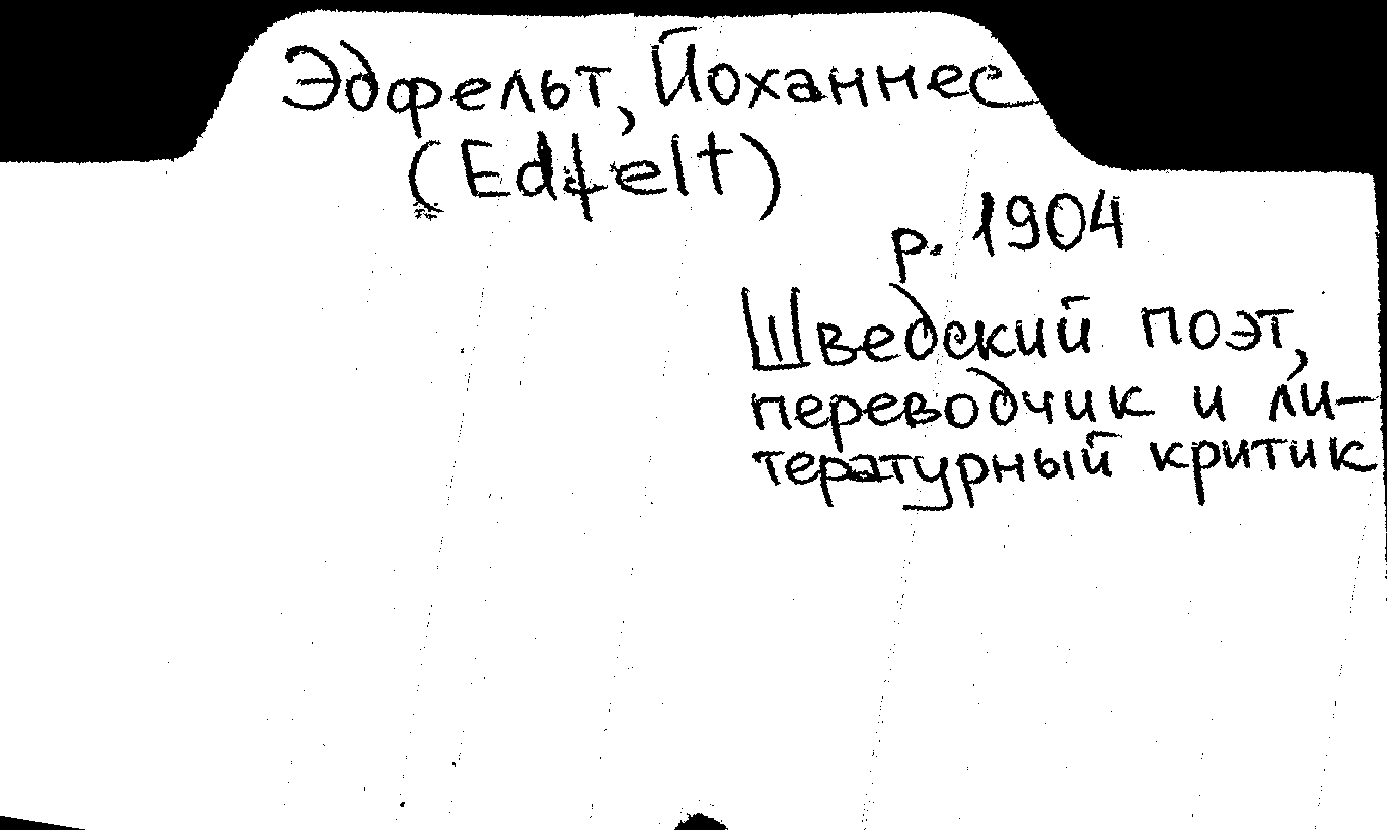 Эдфельт, Йоханнес
(Edfelt)
р. 1904
Шведский поэт,
переводчик и ли-
тературный критик